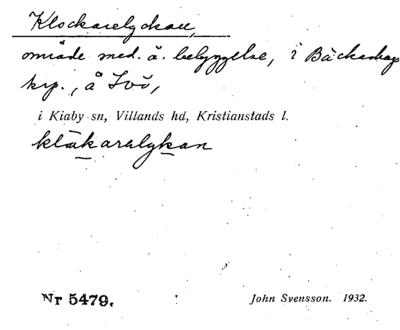 Klockarelyckan,
område med ä. bebyggelse, i Bäckaskogs
krp., å Ivö,
i Kiaby sn, Villands hd, Kristianstads l.
klåkaralykan
Nr 5479.
John Svensson. 1932.